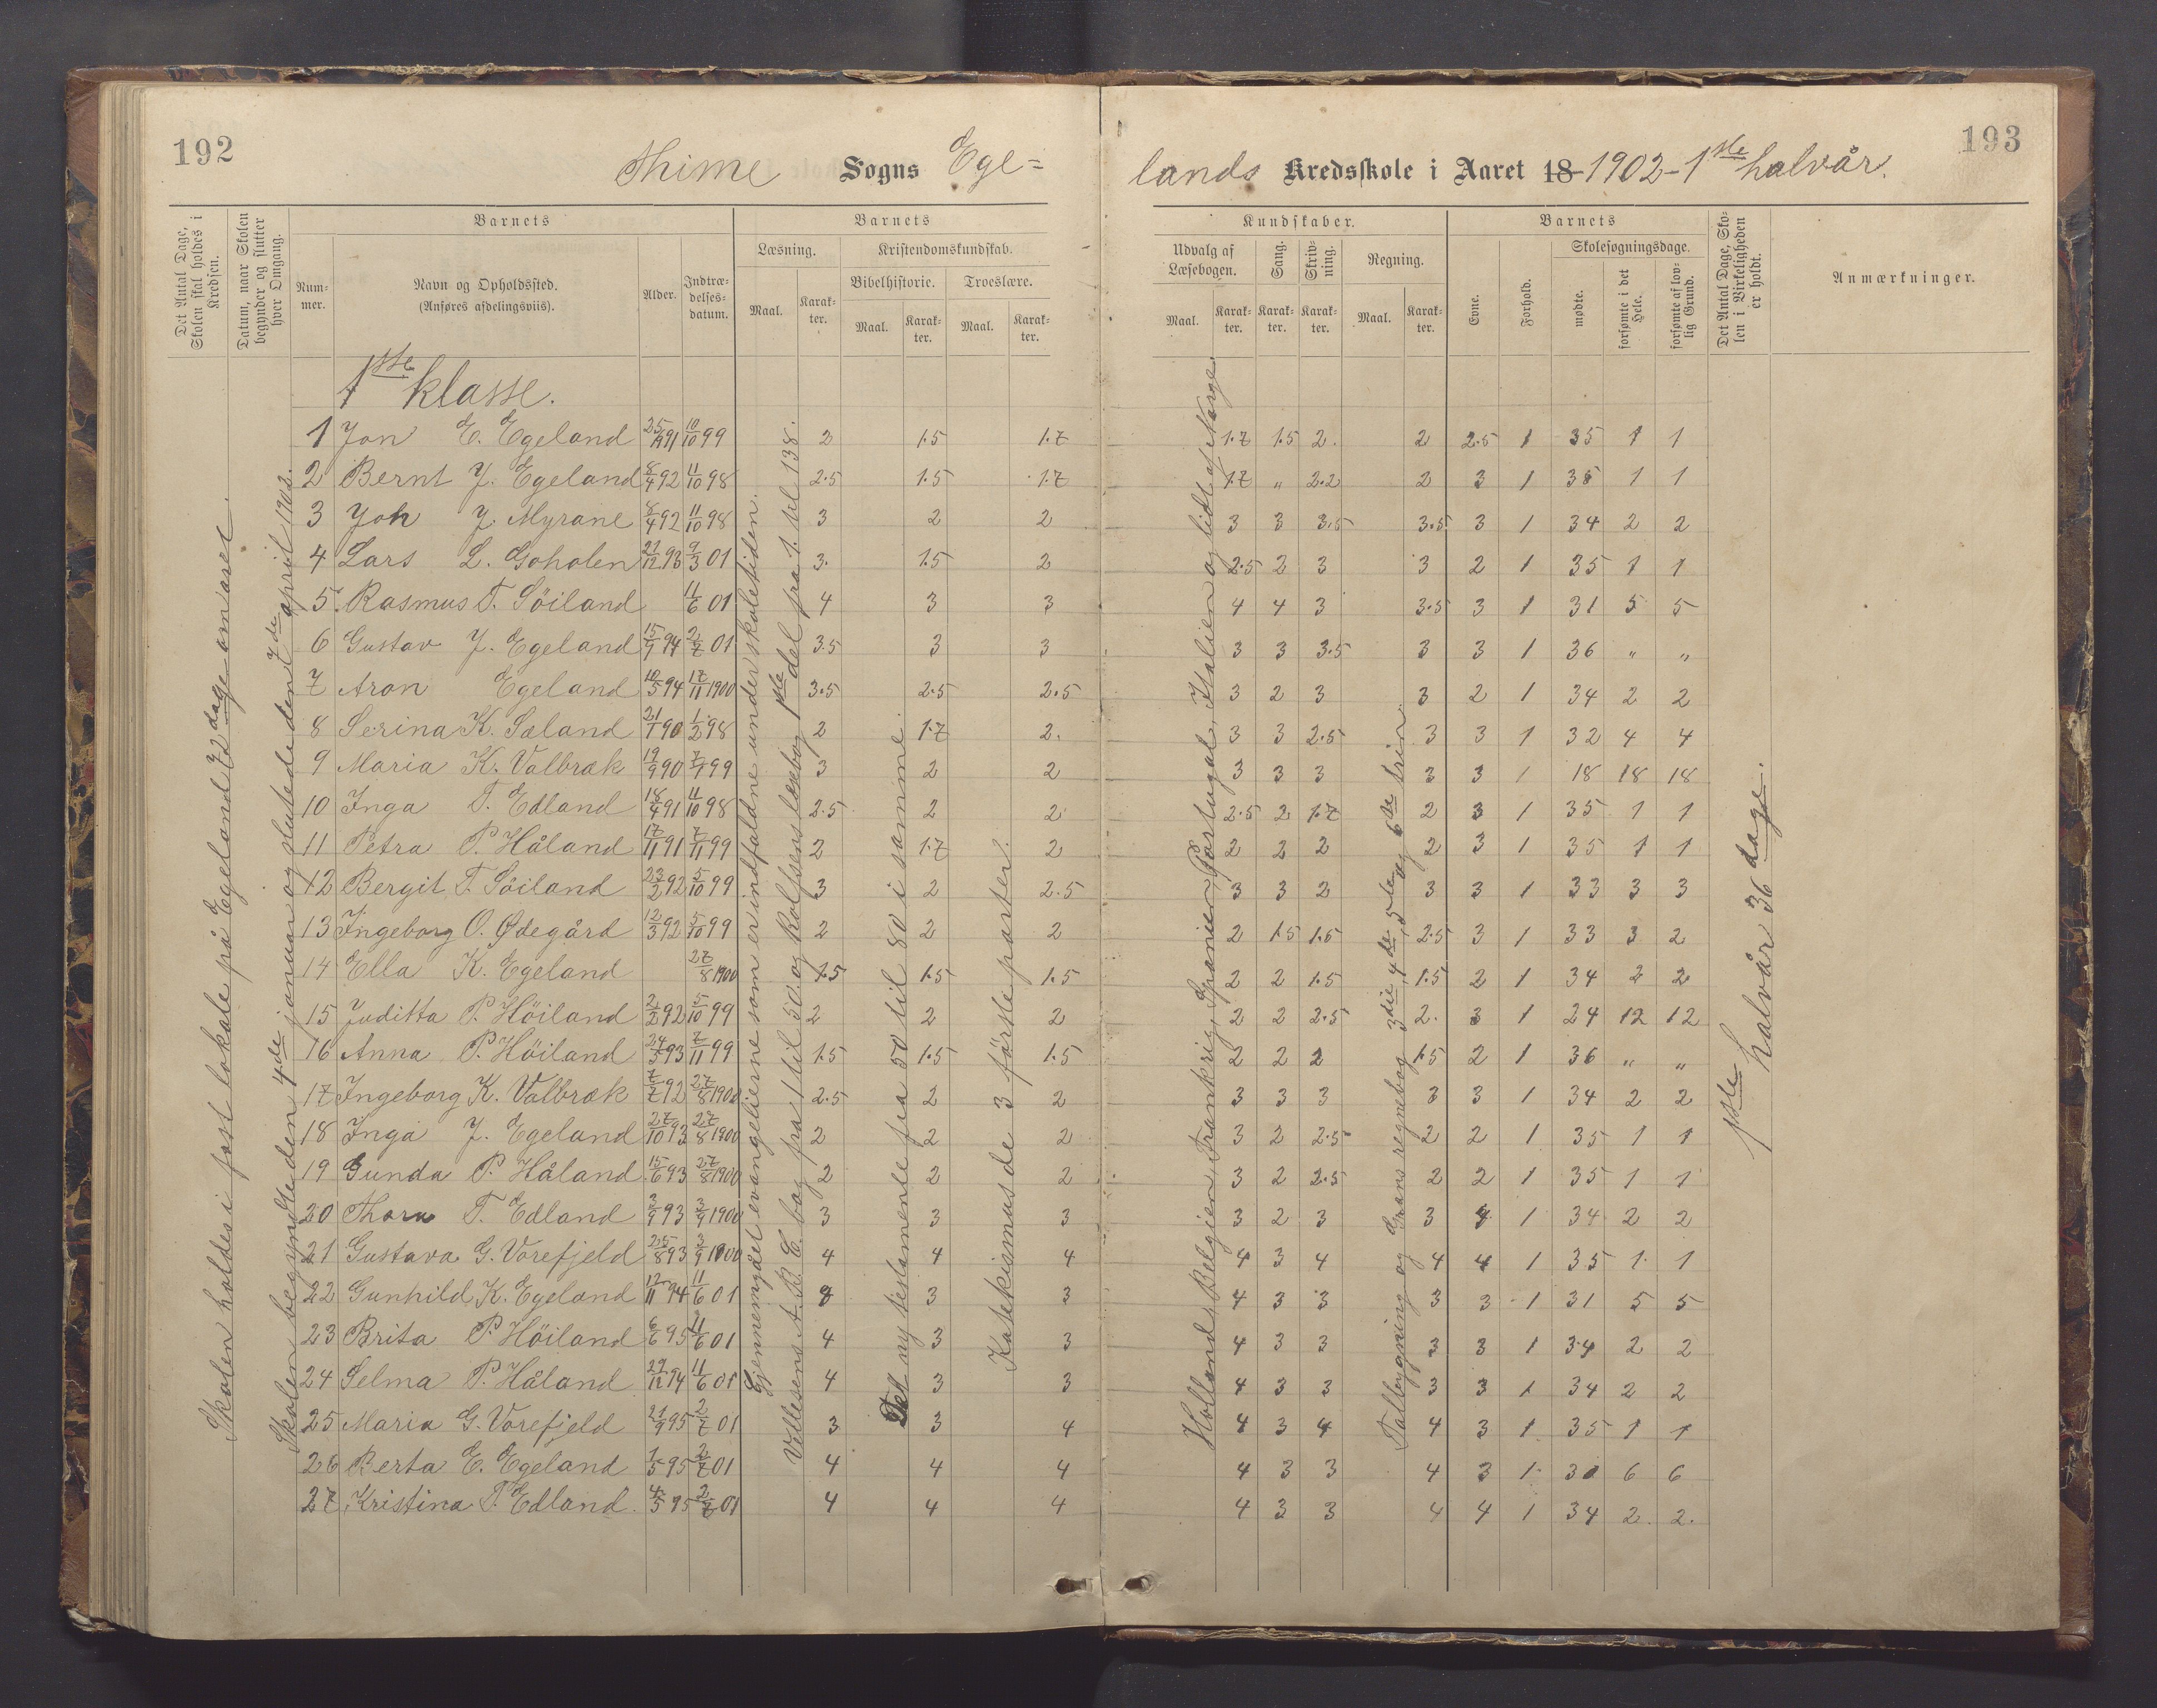 192
193
Thime Sogns Ege=
lands Kredsskole i Aaret 18 1902 - 1ste halvår.
Det Antal Dage, Skolen skal holdes i Kredsen.
Datum, naar Skolen begynder og slutter hver Omgang.
Barnets
Nummer.
Navn og Opholdssted.
(Anføres afdelingsviis).
Alder.
Indtrædelsesdatum.
Barnets
Læsning.
Maal.
Karakter.
Kristendomskundskab.
Bibelhistorie.
Maal.
Karakter.
Troeslære.
Maal.
Karakter.
Kundskaber.
Udvalg af Læsebogen.
Maal.
Karakter.
Sang.
Karakter.
Skrivning.
Karakter.
Regning.
Maal.
Karakter.
Barnets
Evne.
Forhold.
Skolesøgningsdage.
mødte.
forsømte i det Hele.
forsømte af lovlig Grund.
Det Antal Dage, Skolen i Virkeligheden er holdt.
Anmærkninger.
Skolen holdes i fast lokale på Egeland 72 dage om året.
Skolen begyndte den 4de januar og sluttede den 7de april 1902.
1ste klasse.
Gjennemgået evangelierne som er indfaldne under skoletiden.
Vellesens A.B.C. bog fra 1 til 50. og Rolfsens læsebog 1ste del fra 1. til 138.
Det ny testamente fra 50 til 80 i samme.
Katekismus de 3 første parter.
Holland, Belgien, Frankrig, Spanien, Portugal, Italien og lidt af Norge
Tallegning og Grans regnebog 3die, 4de, 5te og 6te trin.
1ste halvår 36 dage.
1 Jon E. Egeland 25/ 91 10/10 99 2 1.5 1.7 1.7 1.5 2. 2 2.5 1 35 1 1
2 Bernt J. Egeland 8/4 92 11/10 98 2.5 1.5 1.7 1.7 " 2.2 2 3 1 35 1 1
3 Joh J. Myrane 8/4 92 11/10 98 3 2 2 3 3 3.5 3.5 3 1 34 2 2
4 Lars L. Goholen 21/12 93 9/3 01 3. 1.5 2 2.5 2 3 3 2 1 35 1 1
5 Rasmus T. Söiland 11/6 01 4 3 3 4 4 3 3.5 3 1 31 5 5
6 Gustav J. Egeland 15/9 94 2/7 01 3.5 3 3 3 3 3.5 3 3 1 36 " "
7 Aron Egeland 10/5 94 17/11 1900 3.5 2.5 2.5 3 2 3 3 2 1 34 2 2
8 Serina K. Sæland 21/1 90 1/2 98 2 1.7 2. 3 3 2.5 3 3 1 32 4 4
9 Maria K. Valbræk 19/9 90 7/ 99 3 2 2 3 3 3 3 3 1 18 18 18
10 Inga T. Edland 18/4 91 11/10 98 2.5 2 2 2.5 2 1.7 2 3 1 35 1 1
11 Petra P. Håland 17/11 91 7/11 99 2 1.7 2 2 2 2 2 3 1 35 1 1
12 Bergit T. Söiland 23/2 92 5/10 99 3 2 2.5 3 3 2 3 3 1 33 3 3
13 Ingeborg O. Ødegård 12/3 92 5/10 99 2 2 2 2 1.5 1.5 2.5 3 1 33 3 2
14 Ella K. Egeland 27/8 1900 1.5 1.5 1.5 2 2 1.5 1.5 2 1 34 2 2
15 Juditta P. Höiland 2/2 92 5/10 99 2 2 2 2 2 2.5 2. 3 1 24 12 12
16 Anna P. Höiland 24/5 93 7/11 99 1.5 1.5 1.5 2 2 2 1.5 2 1 36 " "
17 Ingeborg K. Valbræk 7/7 92 27/8 1900 2.5 2 2 3 3 3 3 3 1 34 2 2
18 Inga J. Egeland 27/10 93 27/8 1900 2 2 2 3 2 2.5 2 2 1 35 1 1
19 Gunda P. Håland 15/6 93 27/8 1900 2 2 2 3 2 2.5 2 2 1 35 1 1
20 Thora T. Edland 3/9 93 3/9 1900 3 3 3 3 2 3 3 4 1 34 2 2
21 Gustava G. Vorefjeld 25/8 93 3/9 1900 4 4 4 4 3 4 4 4 1 35 1 1
22 Gunhild K. Egeland 12/11 94 11/6 01 3 3 4 3 3 3 3 1 31 5 5
23 Brita P. Höiland 6/6 95 11/6 01 4 3 3 4 3 3 3 3 1 34 2 2
24 Selma P. Håland 29/12 94 11/6 01 4 3 3 4 3 3 3 3 1 34 2 2
25 Maria G. Vorefjeld 21/9 95 2/7 01 3 3 4 4 3 4 4 3 1 35 1 1
26 Berta E. Egeland 1/5 95 2/7 01 4 4 4 4 3 3 4 3 1 30 6 6
27 Kristina T. Edland. 4/5 95 2/7 01 4 4 4 4 3 3 4 4 1 34 2 2.